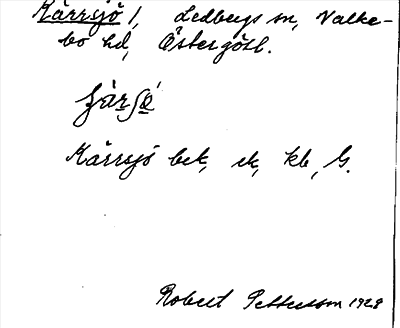 Kärrsjö 1, Ledbergs sn, Valke-
bo hd, Östergötl.
Kärrsjö bek, ek, kb, G.
Robert Pettersson 1928